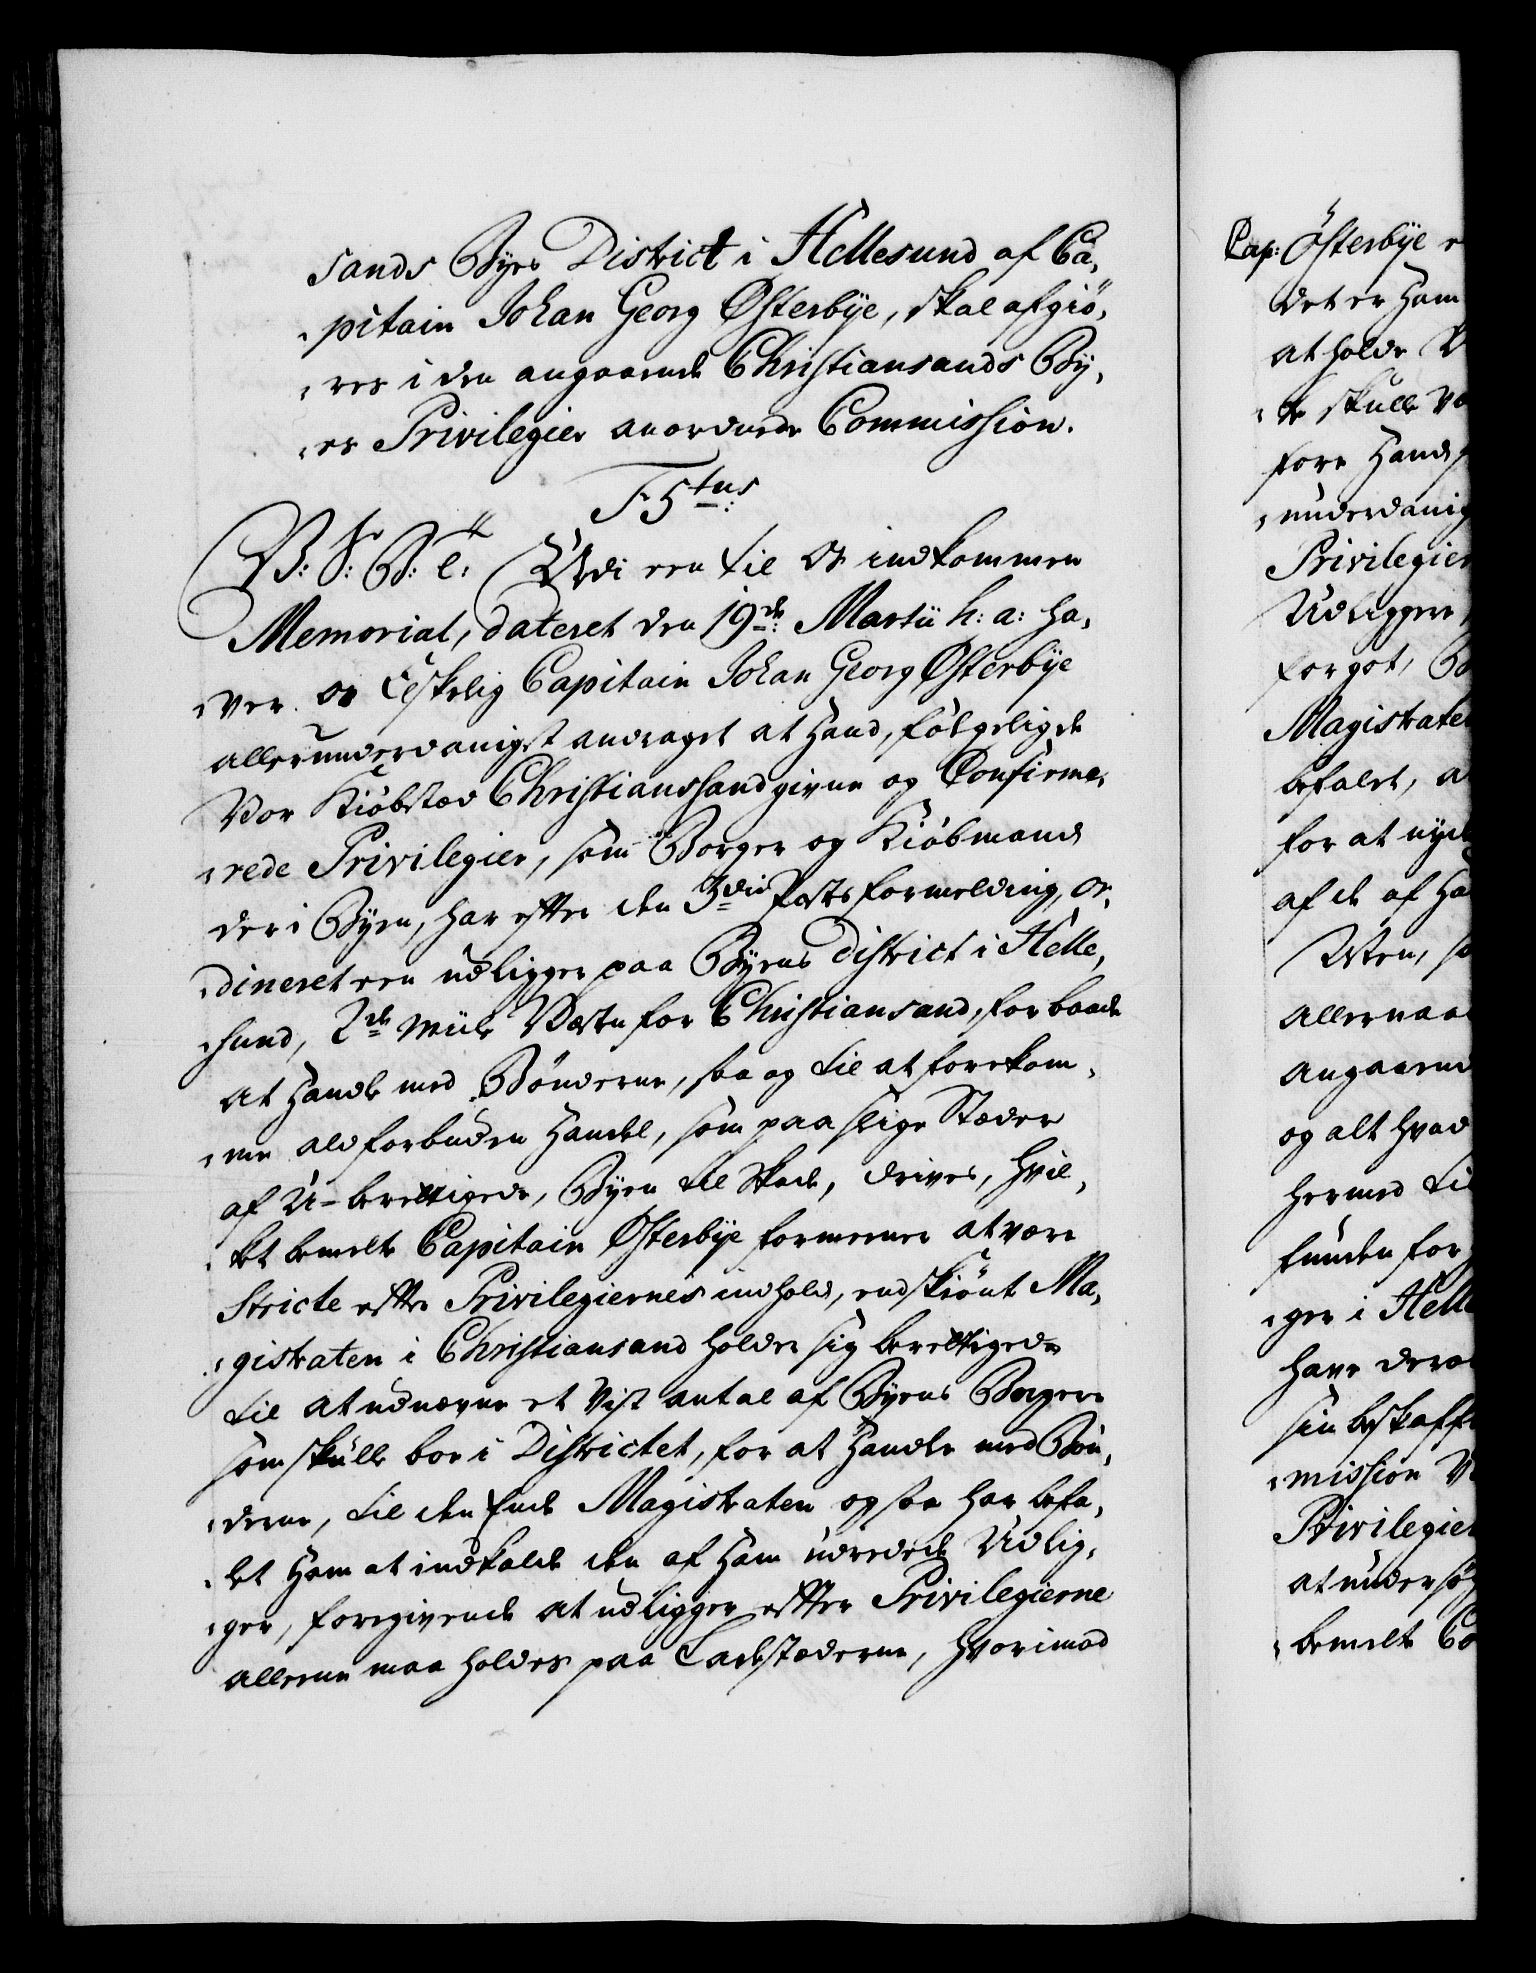 sands Byes District i Hellesund af Ca,
,pitain Johan Georg Østerbÿe, skal afgiö,
,res i den angaaende Christiansands By,
,es Privilegier anordnede Commission.
F 5tus
Memorial, dateret den 19de: Martii h: a: ha,
,ver os Elskelig Capitain Johan Georg Østerbÿe
allerunderdanigst andraget at Hand, fölgelig de
Vor Kiöbstæd Christianssand givne og Confirme,
,rede Privilegier, som Borger og Kiöbmand
der i Byen, har efter den 3die Posts formelding, or,
,dineret een udligger paa Byens District i Helle,
,sund, 2de Miile Vesten for Christiansand, for baade
at Handle med Bönderne, saa og til at forekom,
,me ald forbuden Handel, som paa slige Stæder
af U-berettigede, Byen til Skade, drives, hvil,
,ket bemelte Capitain Østerbÿe formeener at være
Stricte efter Privilegiernes indhold, endskiönt Ma,
,gistraten i Christiansand holder sig berettigede
til at udnævne et Vist antal af Byens Borgere
som skulle boe i Districtet, for at Handle med Bön,
,derne, til den Ende Magistraten og saa har befa,
,let Ham at indkalde den af Ham udredede Udlig,
,ger, foregivende at udligger efter Privilegierne
alleene maa holdes paa Ladestæderne, hvorimod
Cap: Østerbÿe
det er Ham
at holde
skulle
fore Hands
,underdanig
Privilegier
Udliggere
forgot,
Magistraten
befalet,
for at nyde
af de af Ha
Allernaa
angaaend
og alt hvad
hermed til
funden for
,ger i Helle
have dero
sin beskaff
,mission
Privilegier
at undersö
bemelte Co